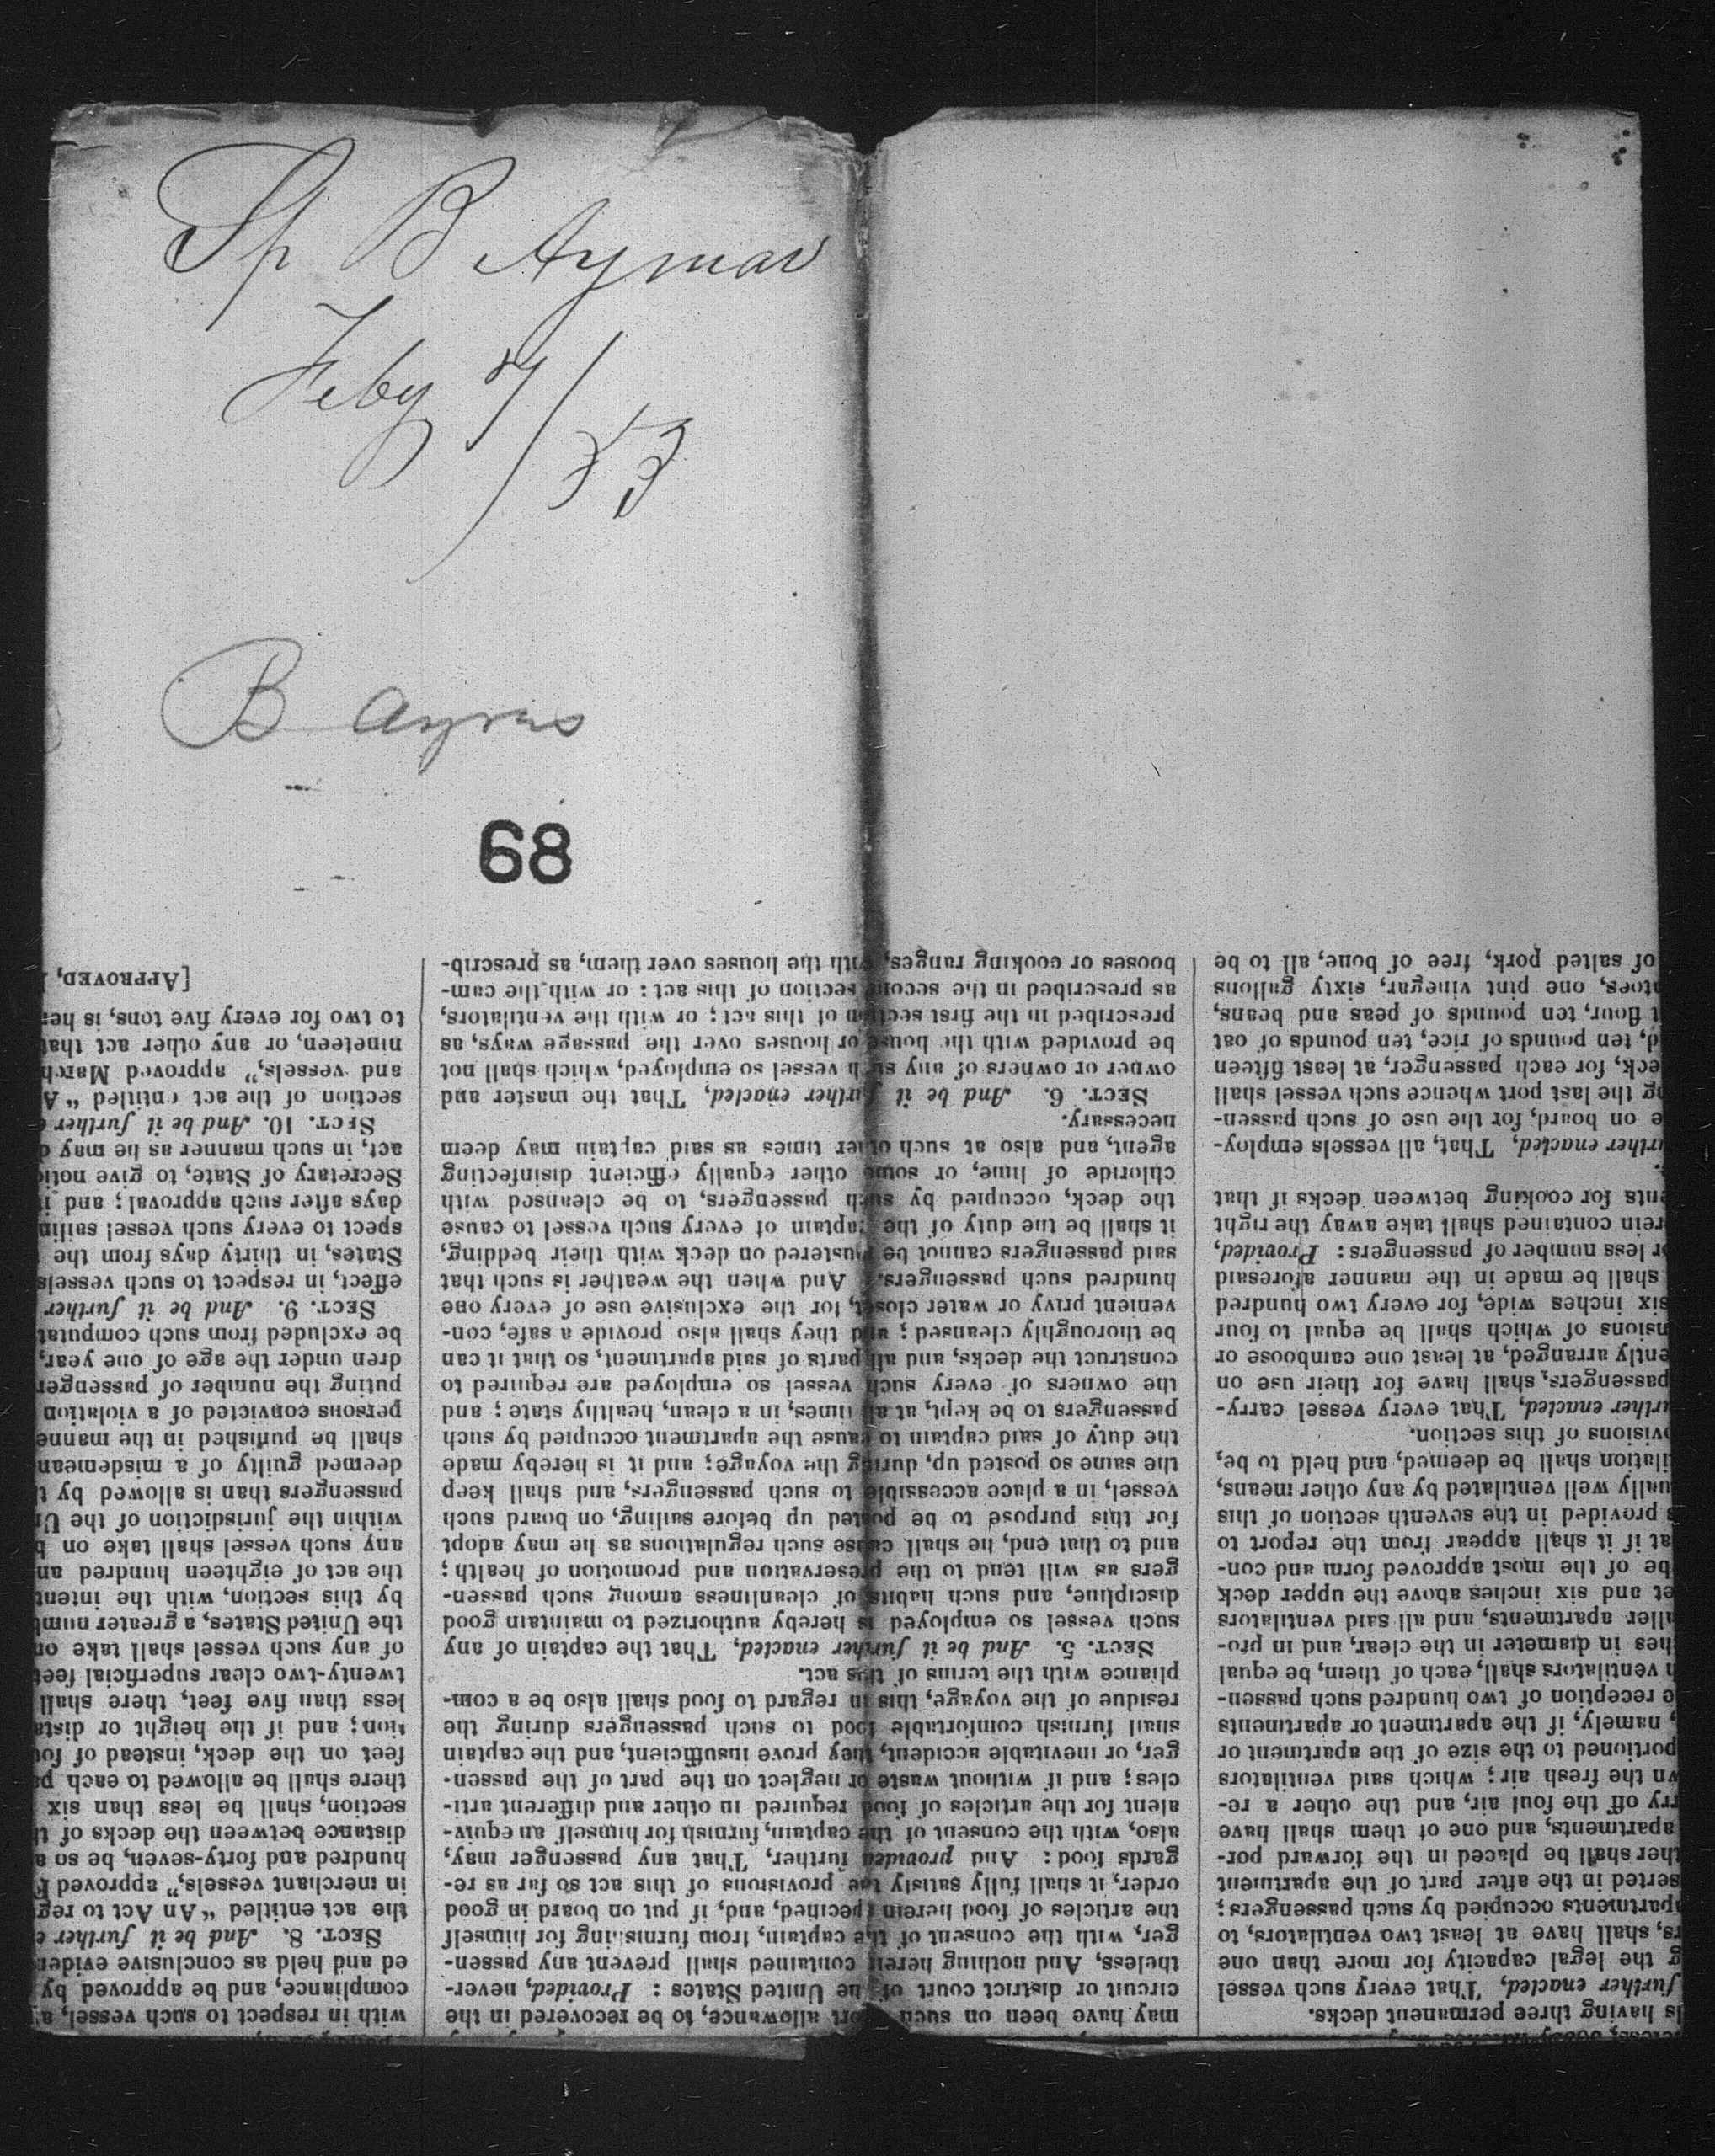 Sp B Aymar
Feby 7/53
B
68
ls having three permanent decks.
further enacted, That every such vessel
g the legal capacity for more than one
rs, shall have at least two ventilators, to
apartments occupied by such passengers;
serted in the after part of the apartment
ther shall be placed in the forward por-
apartments, and one of them shall have
rry off the foul air, and the other a re-
wn the fresh air; which said ventilators
portioned to the size of the apartment or
, namely, if the apartment or apartments
e reception of two hundred such passen-
h ventilators shall, each of them, be equal
ches in diameter in the clear, and in pro-
aller apartments, and all said ventilators
et and six inches above the upper deck
be of the most approved form and con-
at if it shall appear from the report to
s provided in the seventh section of this
ually well ventilated by any other means,
tilation shall be deemed, and held to be,
ovisions of this section.
urther enacted, That every vessel carry-
passengers, shall have for their use on
ently arranged, at least one camboose or
nsions of which shall be equal to four
six inches wide, for every two hundred
shall be made in the manner aforesaid
or less number of passengers: Provided,
rein contained shall take away the right
ents for cooking between decks if that
urther enacted, That, all vessels employ-
e on board, for the use of such passen-
ng the last port whence such vessel shall
eck, for each passenger, at least fifteen
d, ten pounds of rice, ten pounds of oat
t flour, ten pounds of peas and beans,
atoes, one pint vinegar, sixty gallons
of salted pork, free of bone, all to be
may have been on such short allowance, to be recovered in the
circuit or district court of the United States: Provided, never-
theless, And nothing herein contained shall prevent any passen-
ger, with the consent of the captain, from furnishing for himself
the articles of food herein specified, and, if put on board in good
order, it shall fully satisfy the provisions of this act so far as re-
gards food: And provided further, That any passenger may,
also, with the consent of the captain, furnish for himself an equiv-
alent for the articles of food required in other and different arti-
cles; and if without waste or neglect on the part of the passen-
ger, or inevitable accident, they prove insufficient, and the captain
shall furnish comfortable food to such passengers during the
residue of the voyage, this in regard to food shall also be a com-
pliance with the terms of this act.
SECT. 5. And be it further enacted, That the captain of any
such vessel so employed is hereby authorized to maintain good
discipline, and such habits of cleanliness among such passen-
gers as will tend to the preservation and promotion of health;
and to that end, he shall cause such regulations as he may adopt
for this purpose to be posted up before sailing, on board such
vessel, in a place accessible to such passengers, and shall keep
the same so posted up, during the voyage; and it is hereby made
the duty of said captain to cause the apartment occupied by such
passengers to be kept, at all times, in a clean, healthy state; and
the owners of every such vessel so employed are required to
construct the decks, and all parts of said apartment, so that it can
be thoroughly cleansed; and they shall also provide a safe, con-
venient privy or water closet, for the exclusive use of every one
hundred such passengers. And when the weather is such that
said passengers cannot be mustered on deck with their bedding,
it shall be the duty of the captain of every such vessel to cause
the deck, occupied by such passengers, to be cleansed with
chloride of lime, or some other equally efficient disinfecting
agent, and also at such other times as said captain may deem
necessary.
SECT. 6. And be it further enacted, That the master and
owner or owners of any such vessel so employed, which shall not
be provided with the house or houses over the passage ways, as
prescribed in the first section of this act; or with the ventilators,
as prescribed in the second section of this act: or with the cam-
booses or cooking ranges, with the houses over them, as prescrib-
with in respect to such vessel, a
compliance, and be approved by
ed and held as conclusive eviden
SECT. 8. And be it further e
the act entitled "An Act to reg
in merchant vessels," approved F
hundred and forty-seven, be so a
distance between the decks of t
section, shall be less than six
there shall be allowed to each pa
feet on the deck, instead of fou
tion; and if the height or dista
less than five feet, there shall
twenty-two clear superficial feet
of any such vessel shall take on
the United States, a greater numb
by this section, with the intent
the act of eighteen hundred an
any such vessel shall take on b
within the jurisdiction of the Un
passengers than is allowed by t
deemed guilty of a misdemean
shall be punished in the manne
persons convicted of a violation
puting the number of passenger
dren under the age of one year,
be excluded from such computat
SECT. 9. And be it further
effect, in respect to such vessels
States, in thirty days from the
spect to every such vessel sailin
days after such approval; and i
Secretary of State, to give notic
act, in such manner as he may d
SECT. 10. And be it further e
section of the act entitled "A
and vessels," approved March
nineteen, or any other act that
to two for every five tons, is her
[APPROVED,